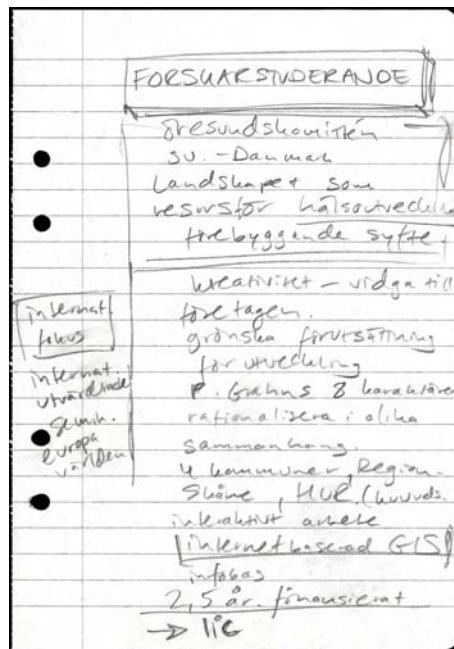 FORSKARSTUDERANDE
Öresundskomittén
sv. - Danmark
Landskapet som
resurs för hälsoutveckling
förebyggande syfte
kreativitet - vidga till
företagen.
grönska förutsättning
för utveckling
P. Grahns 8 karaktärer
rationalisera i olika
sammanhang.
4 kommuner, Region.
Skåne, HUR. (huvuds.
interaktivt arbete
internetbaserad GIS
infobas
2,5 år. finansierat
→ lic
internat.
fokus
internat.
utvärderade
semin.
europa
världen